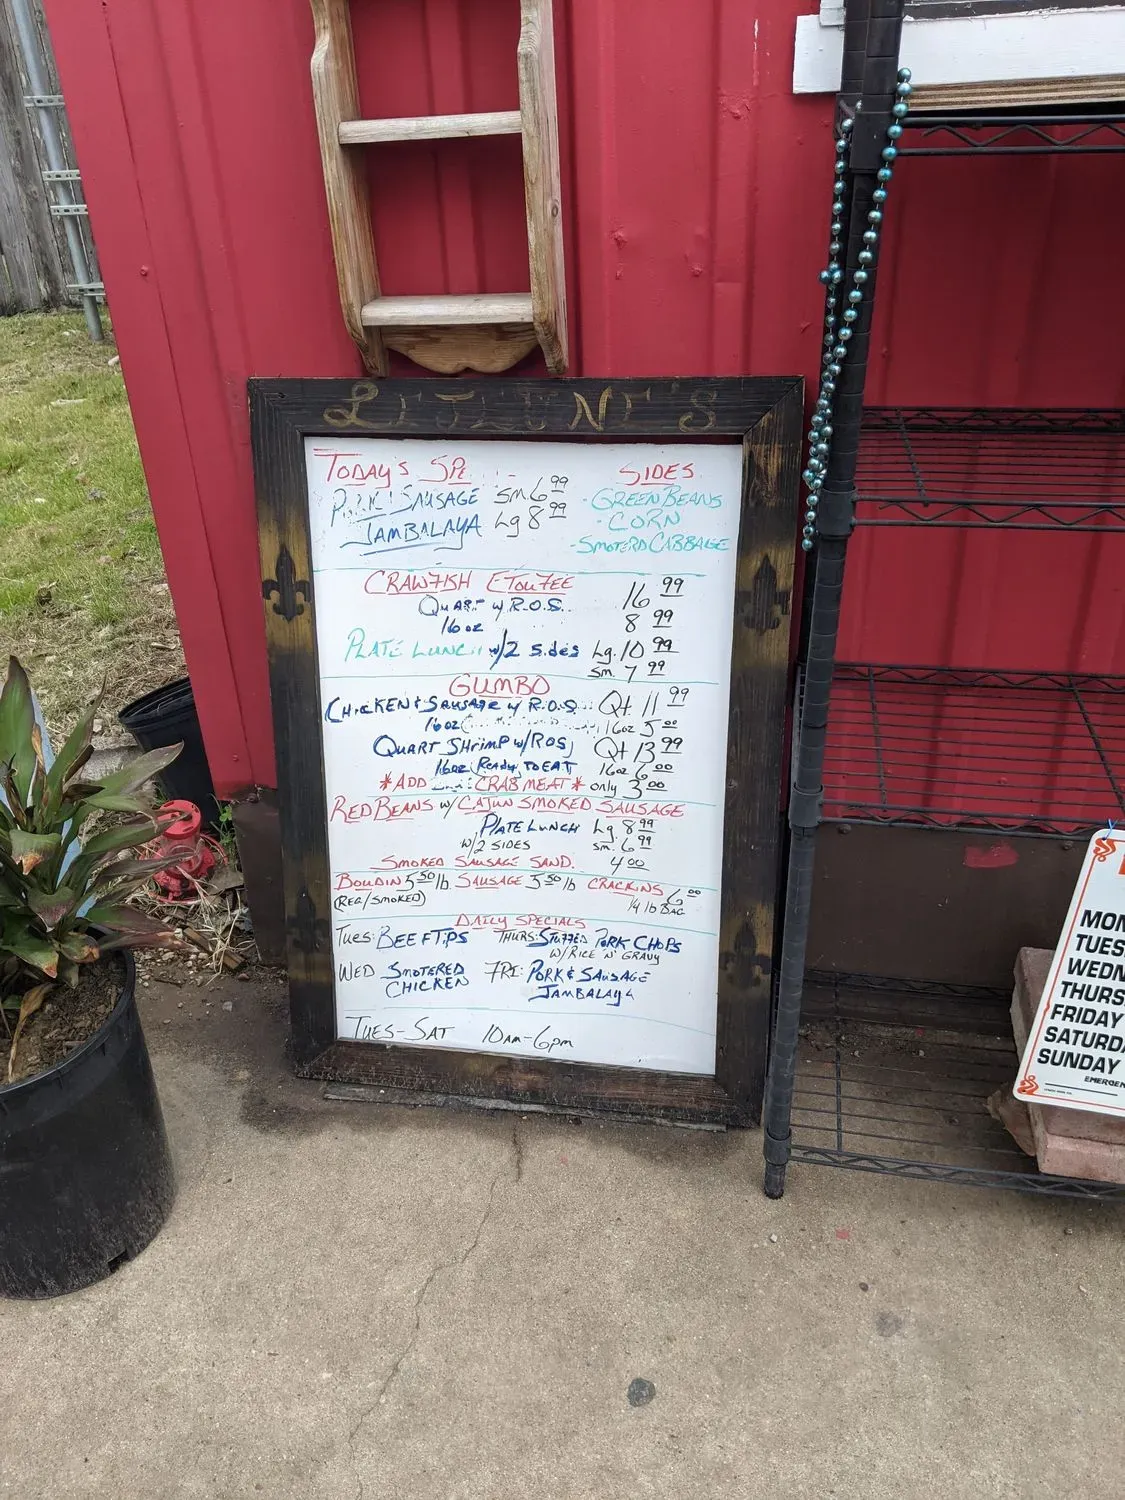 LEJEUNE'S
TODAY'S SPE
PORK & SAUSAGE sm 6 99
JAMBALAYA Lg 8 99
SIDES
- GREEN BEANS
- CORN
- SMOTERD CABBAGE
CRAWFISH ETOUFEE
QUART w/ R.O.S. 16 99
16 oz 8 99
PLATE LUNCH w/2 Sides Lg. 10 99
sm. 7 99
GUMBO
CHICKEN & SAUSAGE w/ R.O.S. Qt 11 99
16 oz 16oz 5 00
QUART SHRIMP w/ ROS Qt 13 99
16oz Ready TO EAT 16oz 6 00
*ADD CRABMEAT* only 3 00
RED BEANS w/ CAJUN SMOKED SAUSAGE
PLATE LUNCH Lg 8 99
W/2 SIDES sm. 6 99
SMOKED SAUSAGE SAND. 4 00
BOUDIN 5 50 lb SAUSAGE 5 50 lb CRACKINS 6 00
(REG/SMOKED) 1/4 lb BAG
DAILY SPECIALS
TUES: BEEF TIPS THURS: STUFFED PORK CHOPS
W/RICE N' GRAVY
WED SMOTERED FRI: PORK & SAUSAGE
CHICKEN JAMBALAYA
TUES-SAT 10AM-6pm
MON
TUES
WEDN
THURS
FRIDAY
SATURDA
SUNDAY
EMERGEN